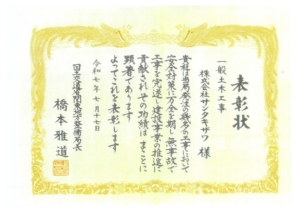 表彰状
一般土木工事
株式会社サンタキザワ 様
貴社は当局発注の頭書の工事において
安全対策に万全を期し無事故で
工事を完遂し建設事業の推進に
貢献されその功績はまことに
顕著であります
よってこれを表彰します
令和七年七月十七日
国土交通省関東地方整備局長
橋本雅道